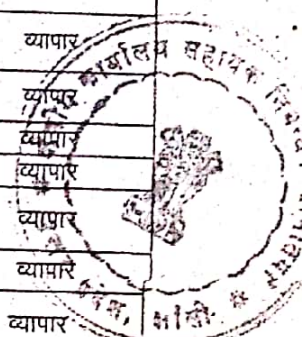 व्यापार
व्यापार
व्यापार
व्यापार
व्यापार
व्यापार
व्यापार
कार्यालय सहायक
झांसी